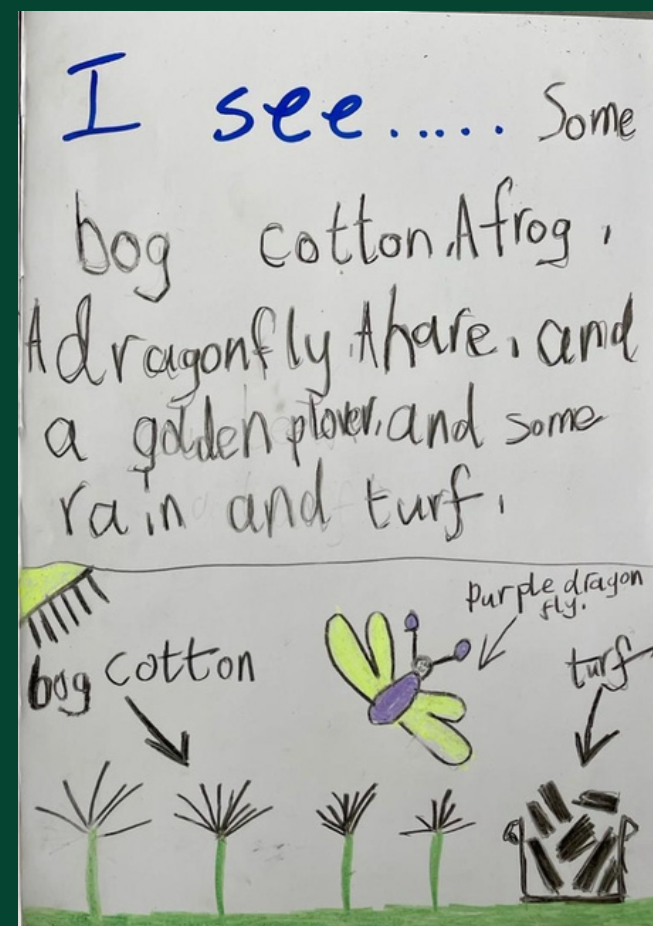 I see..... Some
bog cotton. A frog.
A dragonfly. A hare. and
a golden plover. and some
rain and turf.
purple dragon
fly.
bog cotton
turf